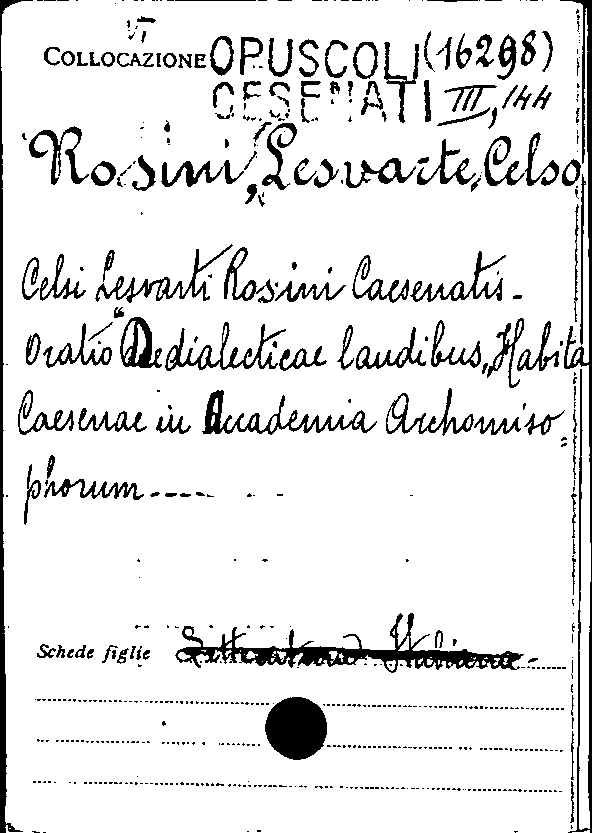 VI
COLLOCAZIONE OPUSCOLI (16298)
CESENATI III, 144
Rosini, Lesvarte, Celso
Celsi Lesvarti Rosini Caesenatis -
Oratio "De dialecticae laudibus,, Habita
Caesenae in Accademia Archomiso=
phorum ----
Schede figlie Letteratura Italiana -